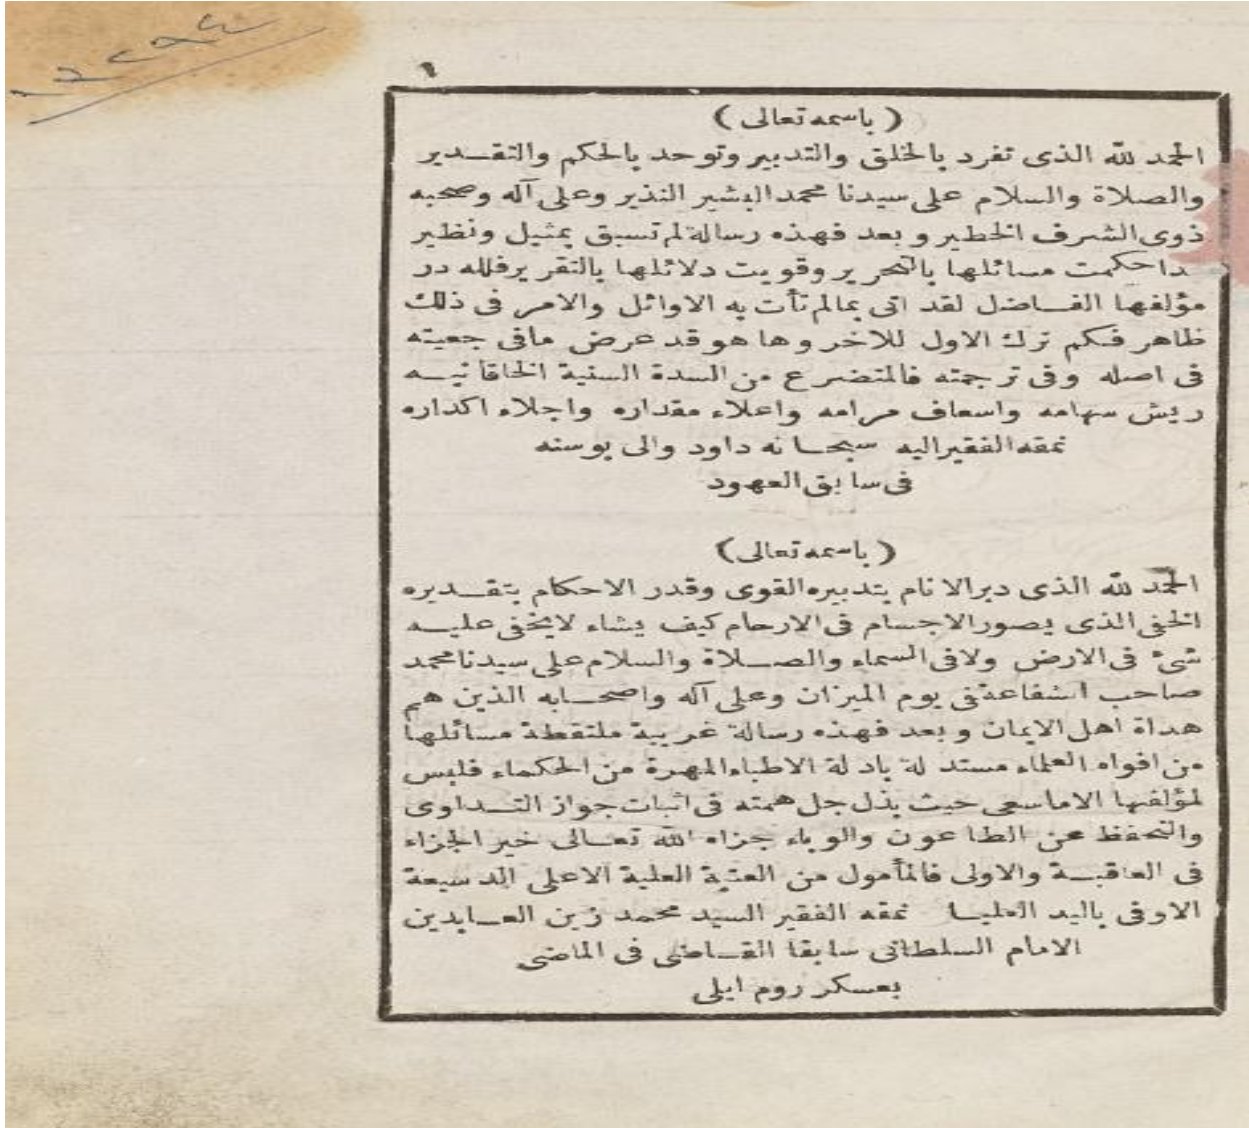 ١٦٢٩٤
١
(باسمه تعالى)
الحمد لله الذى تفرد بالخلق والتدبير وتوحد بالحكم والتقـدير
والصلاة والسلام على سيدنا محمد البشير النذير وعلى آله وصحبه
ذوى الشرف الخطير وبعد فهذه رسالة لم تسبق بمثيل ونظير
احكمت مسائلها بالتحرير وقويت دلائلها بالتقرير فلله در
مؤلفها الفـاضل لقد اتى بمالم تأت به الاوائل والامر فى ذلك
ظاهر فكم ترك الاول للاخر وها هو قد عرض مافى جعبته
فى اصله وفى ترجمته فالمتضرع من السدة السنية الخاقانيـه
ريش سهامه واسعاف مرامه واعلاء مقداره واجلاء اكداره
نمقه الفقير اليه سبحـانه داود والى بوسنه
فى سابق العهود
(باسمه تعالى)
الحمد لله الذى دبر الانام بتدبيره القوى وقدر الاحكام بتقـديره
الخفى الذى يصور الاجسام فى الارحام كيف يشاء لايخفى عليـه
شئ فى الارض ولافى السماء والصـلاة والسلام على سيدنا محمد
صاحب الشفاعة فى يوم الميزان وعلى آله واصحـابه الذين هم
هداة اهل الايمان وبعد فهذه رسالة غريبة ملتقطة مسائلها
من افواه العلماء مستدلة بادلة الاطباء المهرة من الحكماء فليس
لمؤلفها الاماسعى حيث بذل جل همته فى اثبات جواز التـداوى
والتحفظ عن الطاعون والوباء جزاه الله تعـالى خير الجزاء
فى العاقبـة والاولى فالمأمول من العتبة العلية الاعلى الدسيعة
الاوفى باليد العليـا نمقه الفقير السيد محمد زين العـابدين
الامام السلطانى سابقا القـاضى فى الماضى
بعسكر روم ايلى